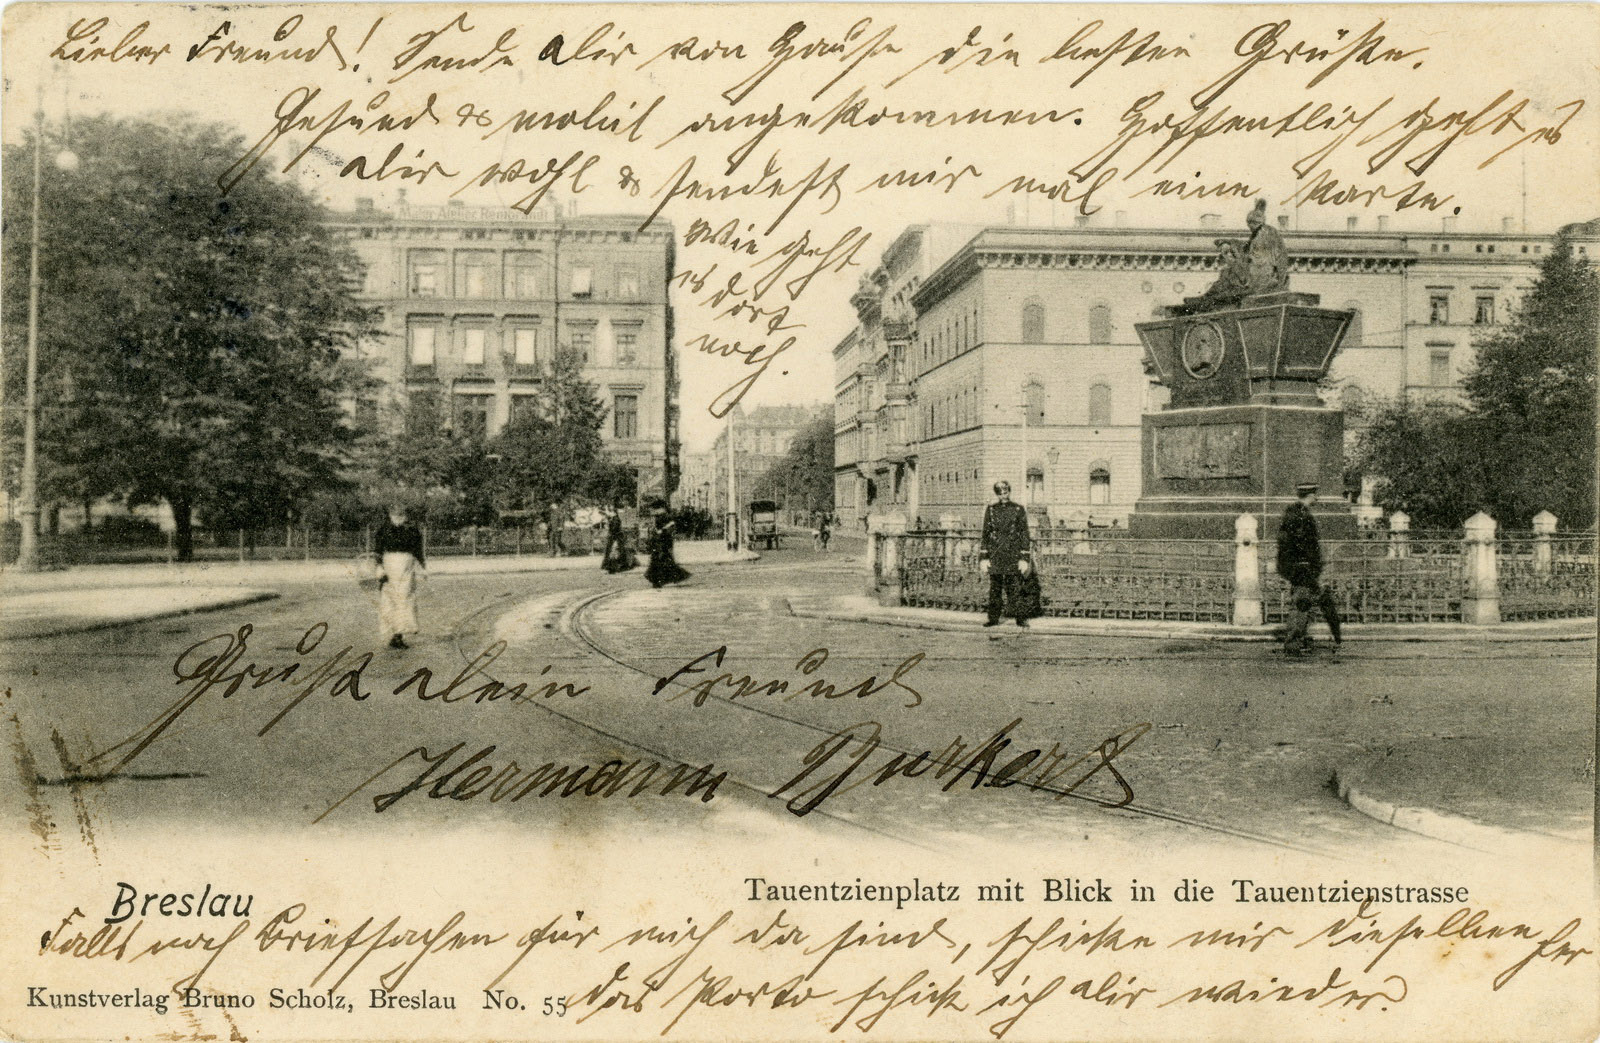 Lieber Freund! Sende Dir von Hause die besten Grüße.
Gesund & mobil angekommen. Hoffentlich geht es
Dir wohl & sendest mir mal eine Karte.
Wie geht
es dort
noch.
Maler-Atelier Rembrandt
Gruß Dein Freund
Hermann Burkert
Breslau
Tauentzienplatz mit Blick in die Tauentzienstrasse
Falls noch Briefsachen für mich da sind, schicke mir dieselben her
das Porto schick ich Dir wieder.
Kunstverlag Bruno Scholz, Breslau No. 55